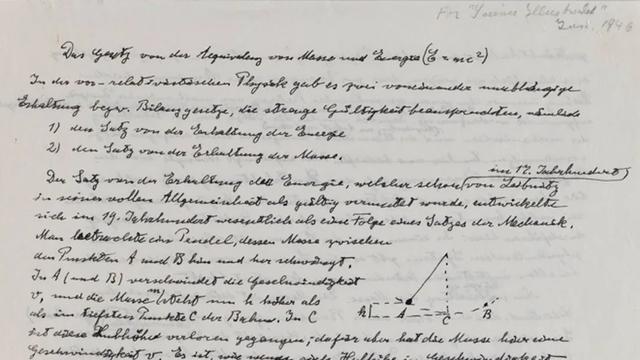 For "Science Illustrated"
Juni 1946
Das Gesetz von der Aequivalenz von Masse und Energie (E = mc²)
In der vor-relativistischen Physik gab es zwei voneinander unabhängige
Erhaltungs bezw. Bilanzgesetze, die strenge Gültigkeit beanspruchten, nämlich
1) den Satz von der Erhaltung der Energie
2) den Satz von der Erhaltung der Masse.
im 17. Jahrhundert
Der Satz von der Erhaltung der Energie, welcher schon von Leibnitz
in seiner vollen Allgemeinheit als gültig vermutet wurde, entwickelte
sich im 19. Jahrhundert wesentlich als eine Folge eines Satzes der Mechanik.
Man betrachte ein Pendel, dessen Masse zwischen
den Punkten A und B hin und her schwingt.
In A (und B) verschwindet die Geschwindigkeit
v, und die Masse m steht um h höher als
im tiefsten Punkte C der Bahn. In C
ist diese Hubhöhe verloren gegangen; dafür aber hat die Masse hier eine
Geschwindigkeit v. Es ist, wie wenn sich Hubhöhe in Geschwindigkeit
h A C B